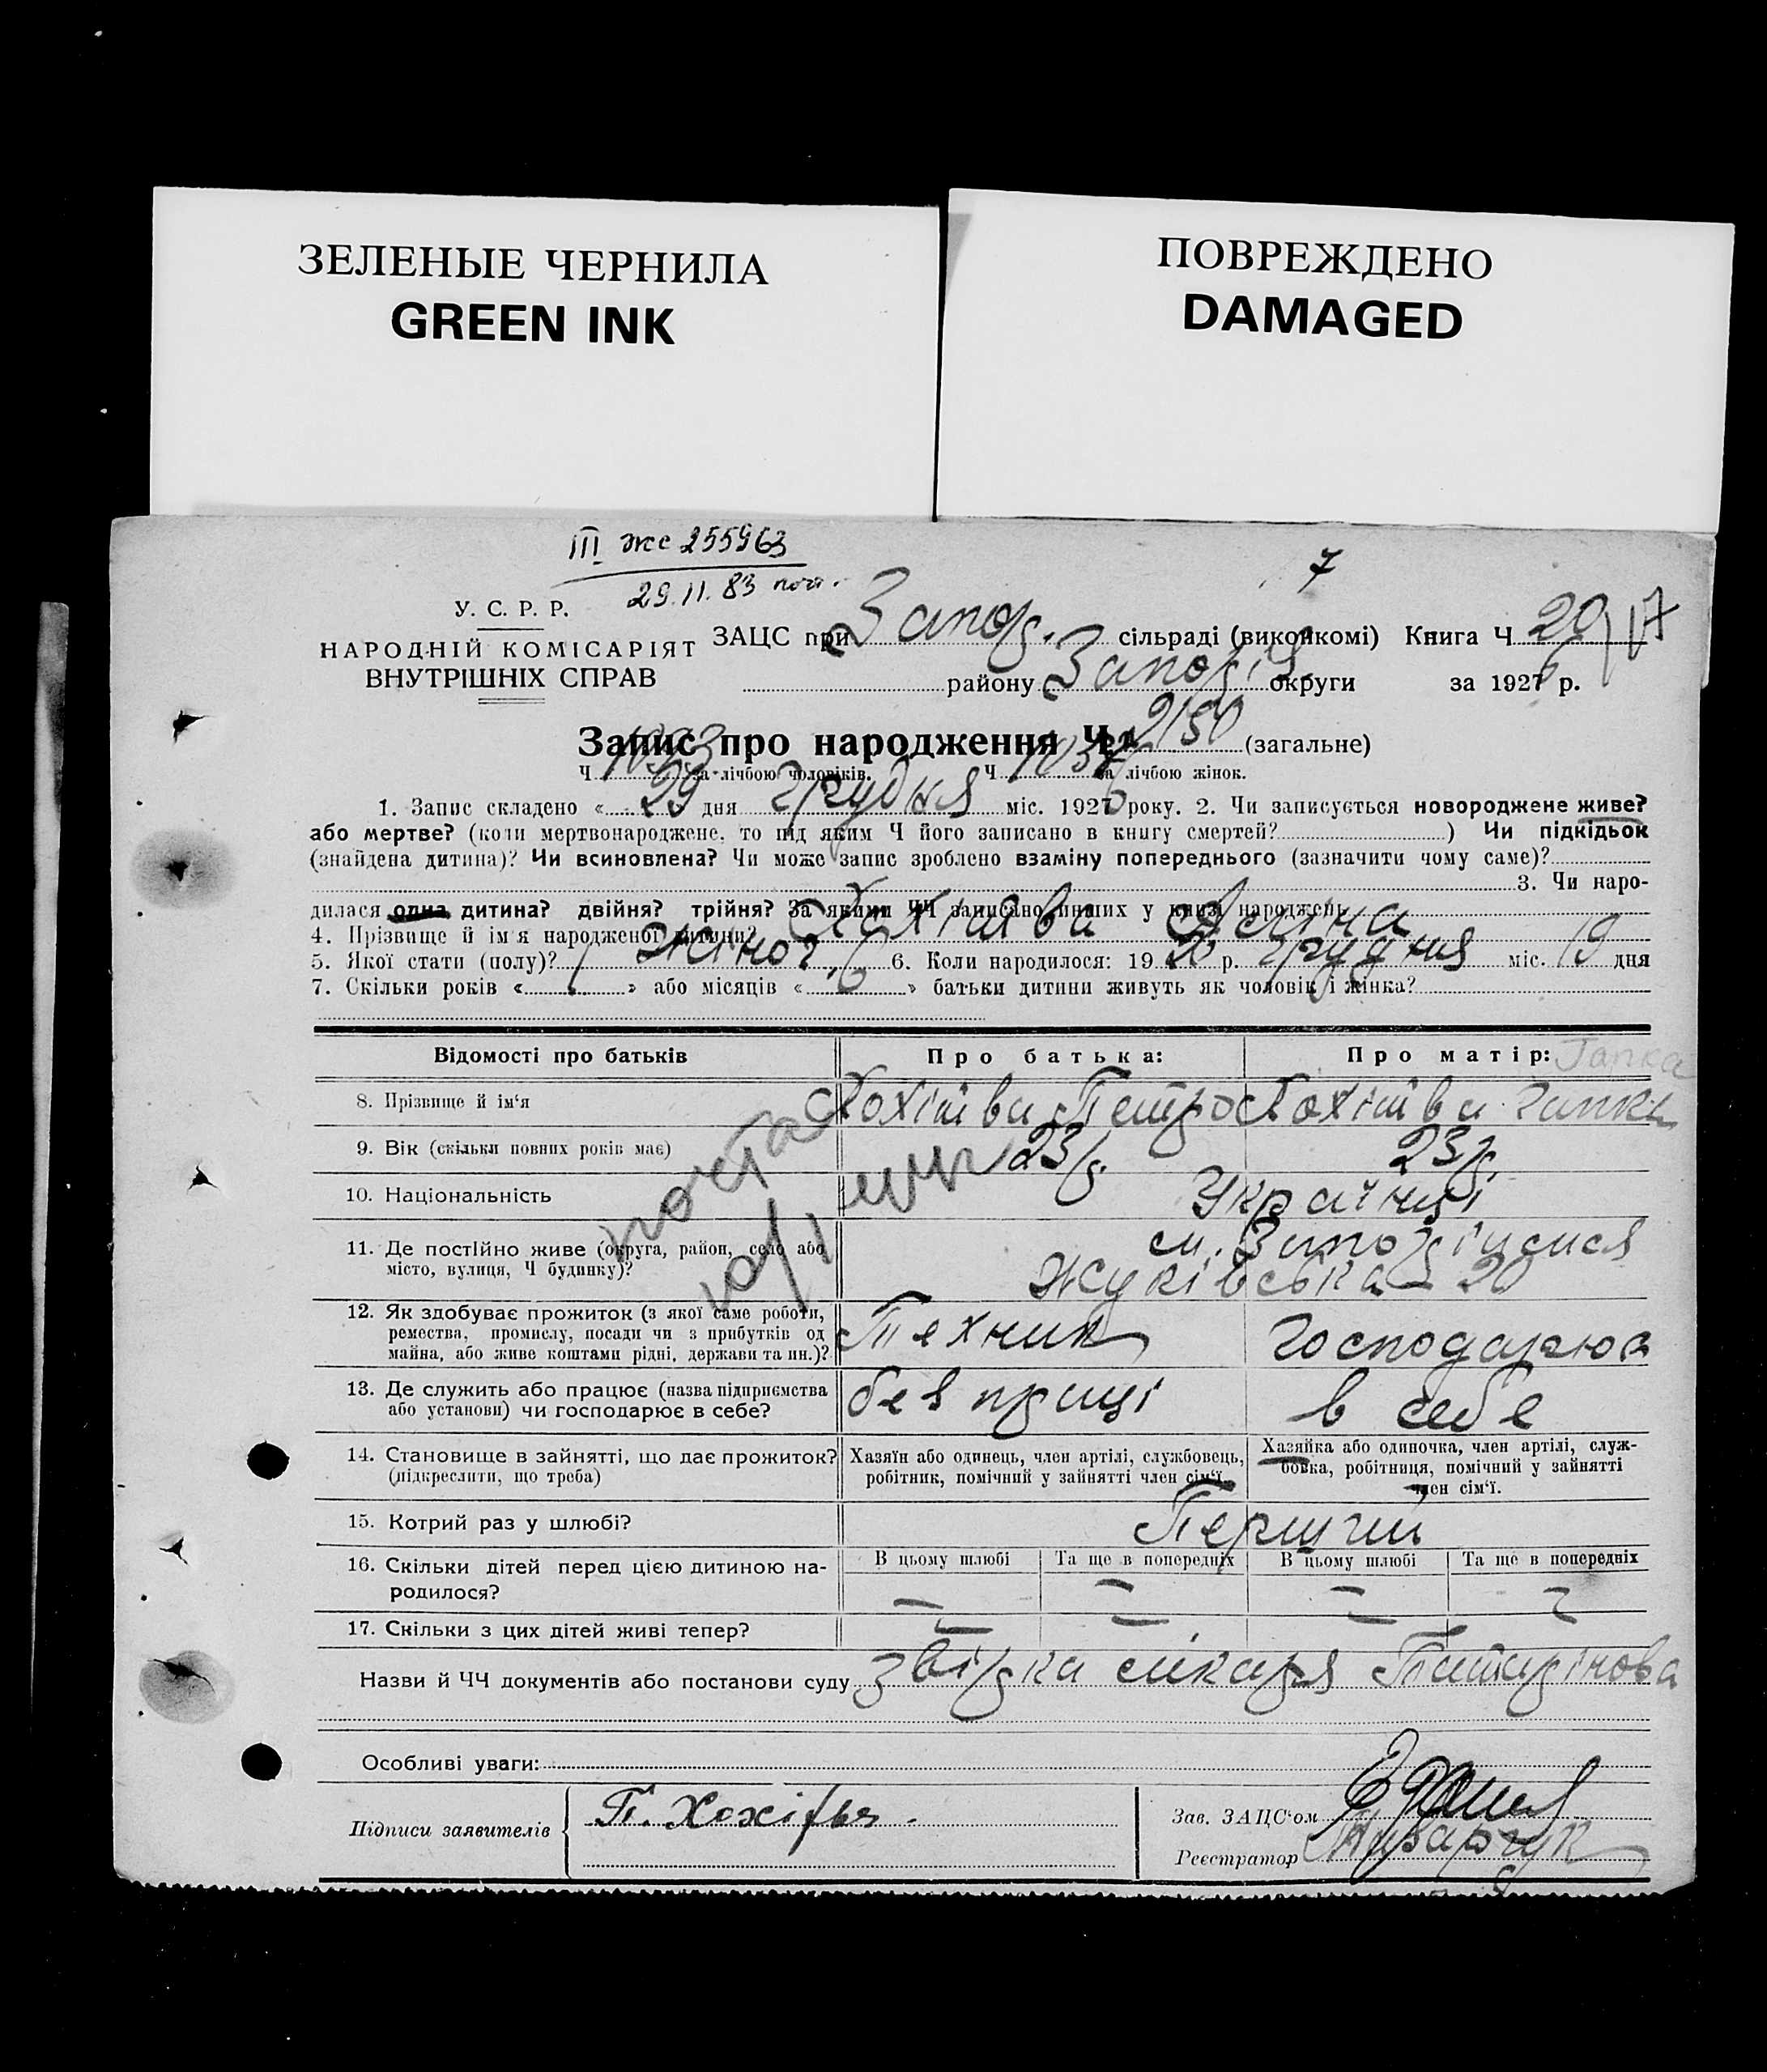 ЗЕЛЕНЫЕ ЧЕРНИЛА
GREEN INK
ПОВРЕЖДЕНО
DAMAGED
III же 255963
29.11.83
7
У. С. Р. Р.
НАРОДНІЙ КОМІСАРІЯТ
ВНУТРІШНІХ СПРАВ
ЗАЦС при Запор. сільраді (виконкомі) Книга Ч 29/17
району Запоріз округи за 1926 р.
Запис про народження Ч 2150 (загальне)
Ч 1093 за лічбою чоловіків. Ч за лічбою жінок.
1. Запис складено « 29 дня грудня міс. 1926 року. 2. Чи записується новороджене живе?
або мертве? (коли мертвонароджене, то під яким Ч його записано в книгу смертей? ) Чи підкідьок
(знайдена дитина)? Чи всиновлена? Чи може запис зроблено взаміну попереднього (зазначити чому саме)?
3. Чи наро-
дилася одна дитина? двійня? трійня? За якими ЧЧ записано инших у книзі народжень
4. Прізвище й ім'я народженої дитини? Хохітва
5. Якої стати (полу)? жіноч. 6. Коли народилося: 1926 р. грудня міс. 19 дня
7. Скільки років « 1 » або місяців « 6 » батьки дитини живуть як чоловік і жінка?
Відомості про батьків
Про батька:
Про матір: Гапка
8. Прізвище й ім'я
Хохітва Петро
Хохітва Гапка
9. Вік (скільки повних років має)
23 р.
23 р.
10. Національність
Українці
11. Де постійно живе (округа, район, село або
місто, вулиця, Ч будинку)?
м. Запоріжжя
Жуківська 20
12. Як здобуває прожиток (з якої саме роботи,
ремества, промислу, посади чи з прибутків од
майна, або живе коштами рідні, держави та ин.)?
Технік
Господарює
13. Де служить або працює (назва підприємства
або установи) чи господарює в себе?
без праці
в себе
14. Становище в зайнятті, що дає прожиток?
(підкреслити, що треба)
Хазяїн або одинець, член артілі, службовець,
робітник, помічний у зайнятті член сім'ї.
Хазяйка або одиночка, член артілі, служ-
бовка, робітниця, помічний у зайнятті
член сім'ї.
15. Котрий раз у шлюбі?
Перший
16. Скільки дітей перед цією дитиною на-
родилося?
В цьому шлюбі
Та ще в попередніх
В цьому шлюбі
Та ще в попередніх
— — — —
17. Скільки з цих дітей живі тепер?
— — —
Назви й ЧЧ документів або постанови суду звідка лікаря
Особливі уваги:
Підписи заявителів
П. Хохітва.
Зав. ЗАЦС'ом
Реєстратор